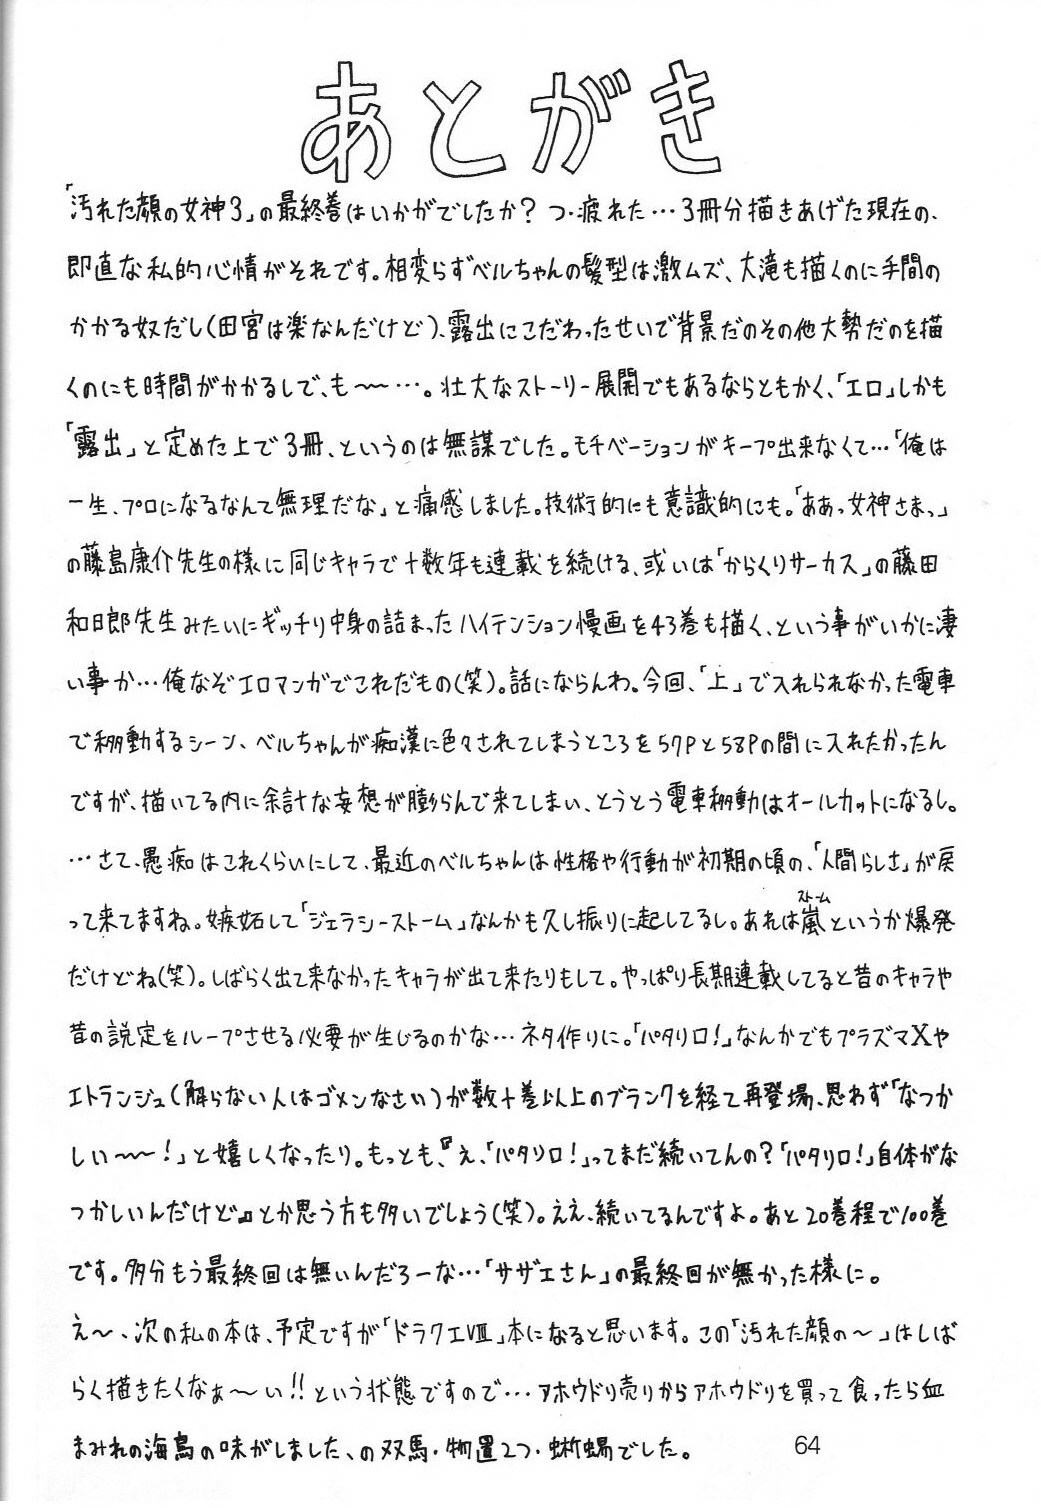 あとがき
「汚れた顔の女神3」の最終巻はいかがでしたか？つ・疲れた…3冊分描きあげた現在の、
即直な私的心情がそれです。相変らずベルちゃんの髪型は激ムズ、大滝も描くのに手間の
かかる奴だし(田宮は楽なんだけど)、露出にこだわったせいで背景だのその他大勢だのを描
くのにも時間がかかるしで、も〜〜…。壮大なストーリー展開でもあるならともかく、「エロ」しかも
「露出」と定めた上で3冊、というのは無謀でした。モチベーションがキープ出来なくて…「俺は
一生、プロになるなんて無理だな」と痛感しました。技術的にも意識的にも。「ああっ女神さまっ」
の藤島康介先生の様に同じキャラで十数年も連載を続ける、或いは「からくりサーカス」の藤田
和日郎先生みたいにギッチリ中身の詰まったハイテンション漫画を43巻も描く、という事がいかに凄
い事か…俺なぞエロマンガでこれだもの(笑)。話にならんわ。今回、「上」で入れられなかった電車
で移動するシーン、ベルちゃんが痴漢に色々されてしまうところを57Pと58Pの間に入れたかったん
ですが、描いてる内に余計な妄想が膨らんで来てしまい、とうとう電車移動はオールカットになるし。
…さて、愚痴はこれくらいにして、最近のベルちゃんは性格や行動が初期の頃の、「人間らしさ」が戻
って来てますね。嫉妬して「ジェラシーストーム」なんかも久し振りに起してるし。あれは嵐(ストーム)というか爆発
だけどね(笑)。しばらく出て来なかったキャラが出て来たりもして。やっぱり長期連載してると昔のキャラや
昔の設定をループさせる必要が生じるのかな…ネタ作りに。「パタリロ！」なんかでもプラズマXや
エトランジュ(解らない人はゴメンなさい)が数十巻以上のブランクを経て再登場、思わず「なつか
しい〜〜！」と嬉しくなったり。もっとも、『え、「パタリロ！」ってまだ続いてんの？「パタリロ！」自体がな
つかしいんだけど』とか思う方も多いでしょう(笑)。ええ、続いてるんですよ。あと20巻程で100巻
です。多分もう最終回は無いんだろーな…「サザエさん」の最終回が無かった様に。
え〜、次の私の本は、予定ですが「ドラクエVIII」本になると思います。この「汚れた顔の〜」はしば
らく描きたくなぁ〜い!!という状態ですので…アホウドリ売りからアホウドリを買って食ったら血
まみれの海鳥の味がしました、の双馬・物置2つ・蜥蜴でした。
64